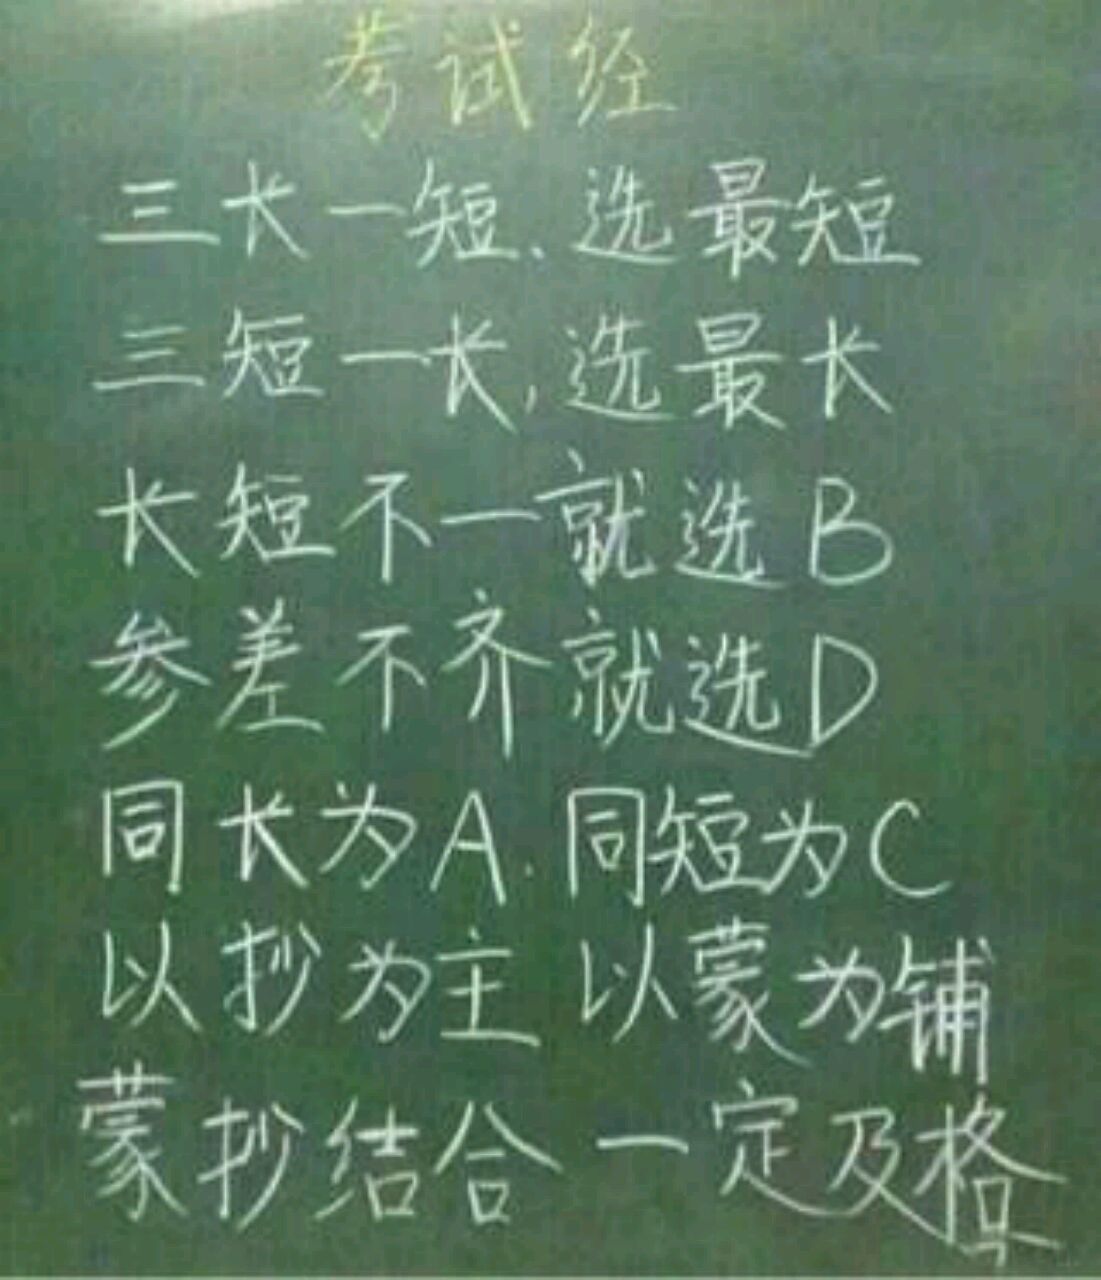 考试经
三长一短、选最短
三短一长,选最长
长短不一就选B
参差不齐就选D
同长为A.同短为C
以抄为主 以蒙为铺
蒙抄结合 一定及格